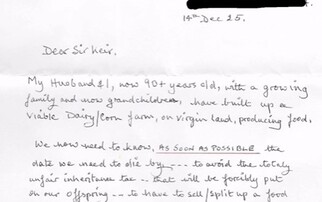 14th Dec 25.
Dear Sir Keir,
My Husband & I, now 90+ years old, with a growing
family and now grandchildren, have built up a
Viable Dairy/Corn farm, on Virgin land, producing food,
We now need to know, AS SOON AS POSSIBLE the
date we need to die by --- to avoid the totaly
unfair inheritance tax -- that will be forcibly put
on our offspring -- to have to sell/split up a food